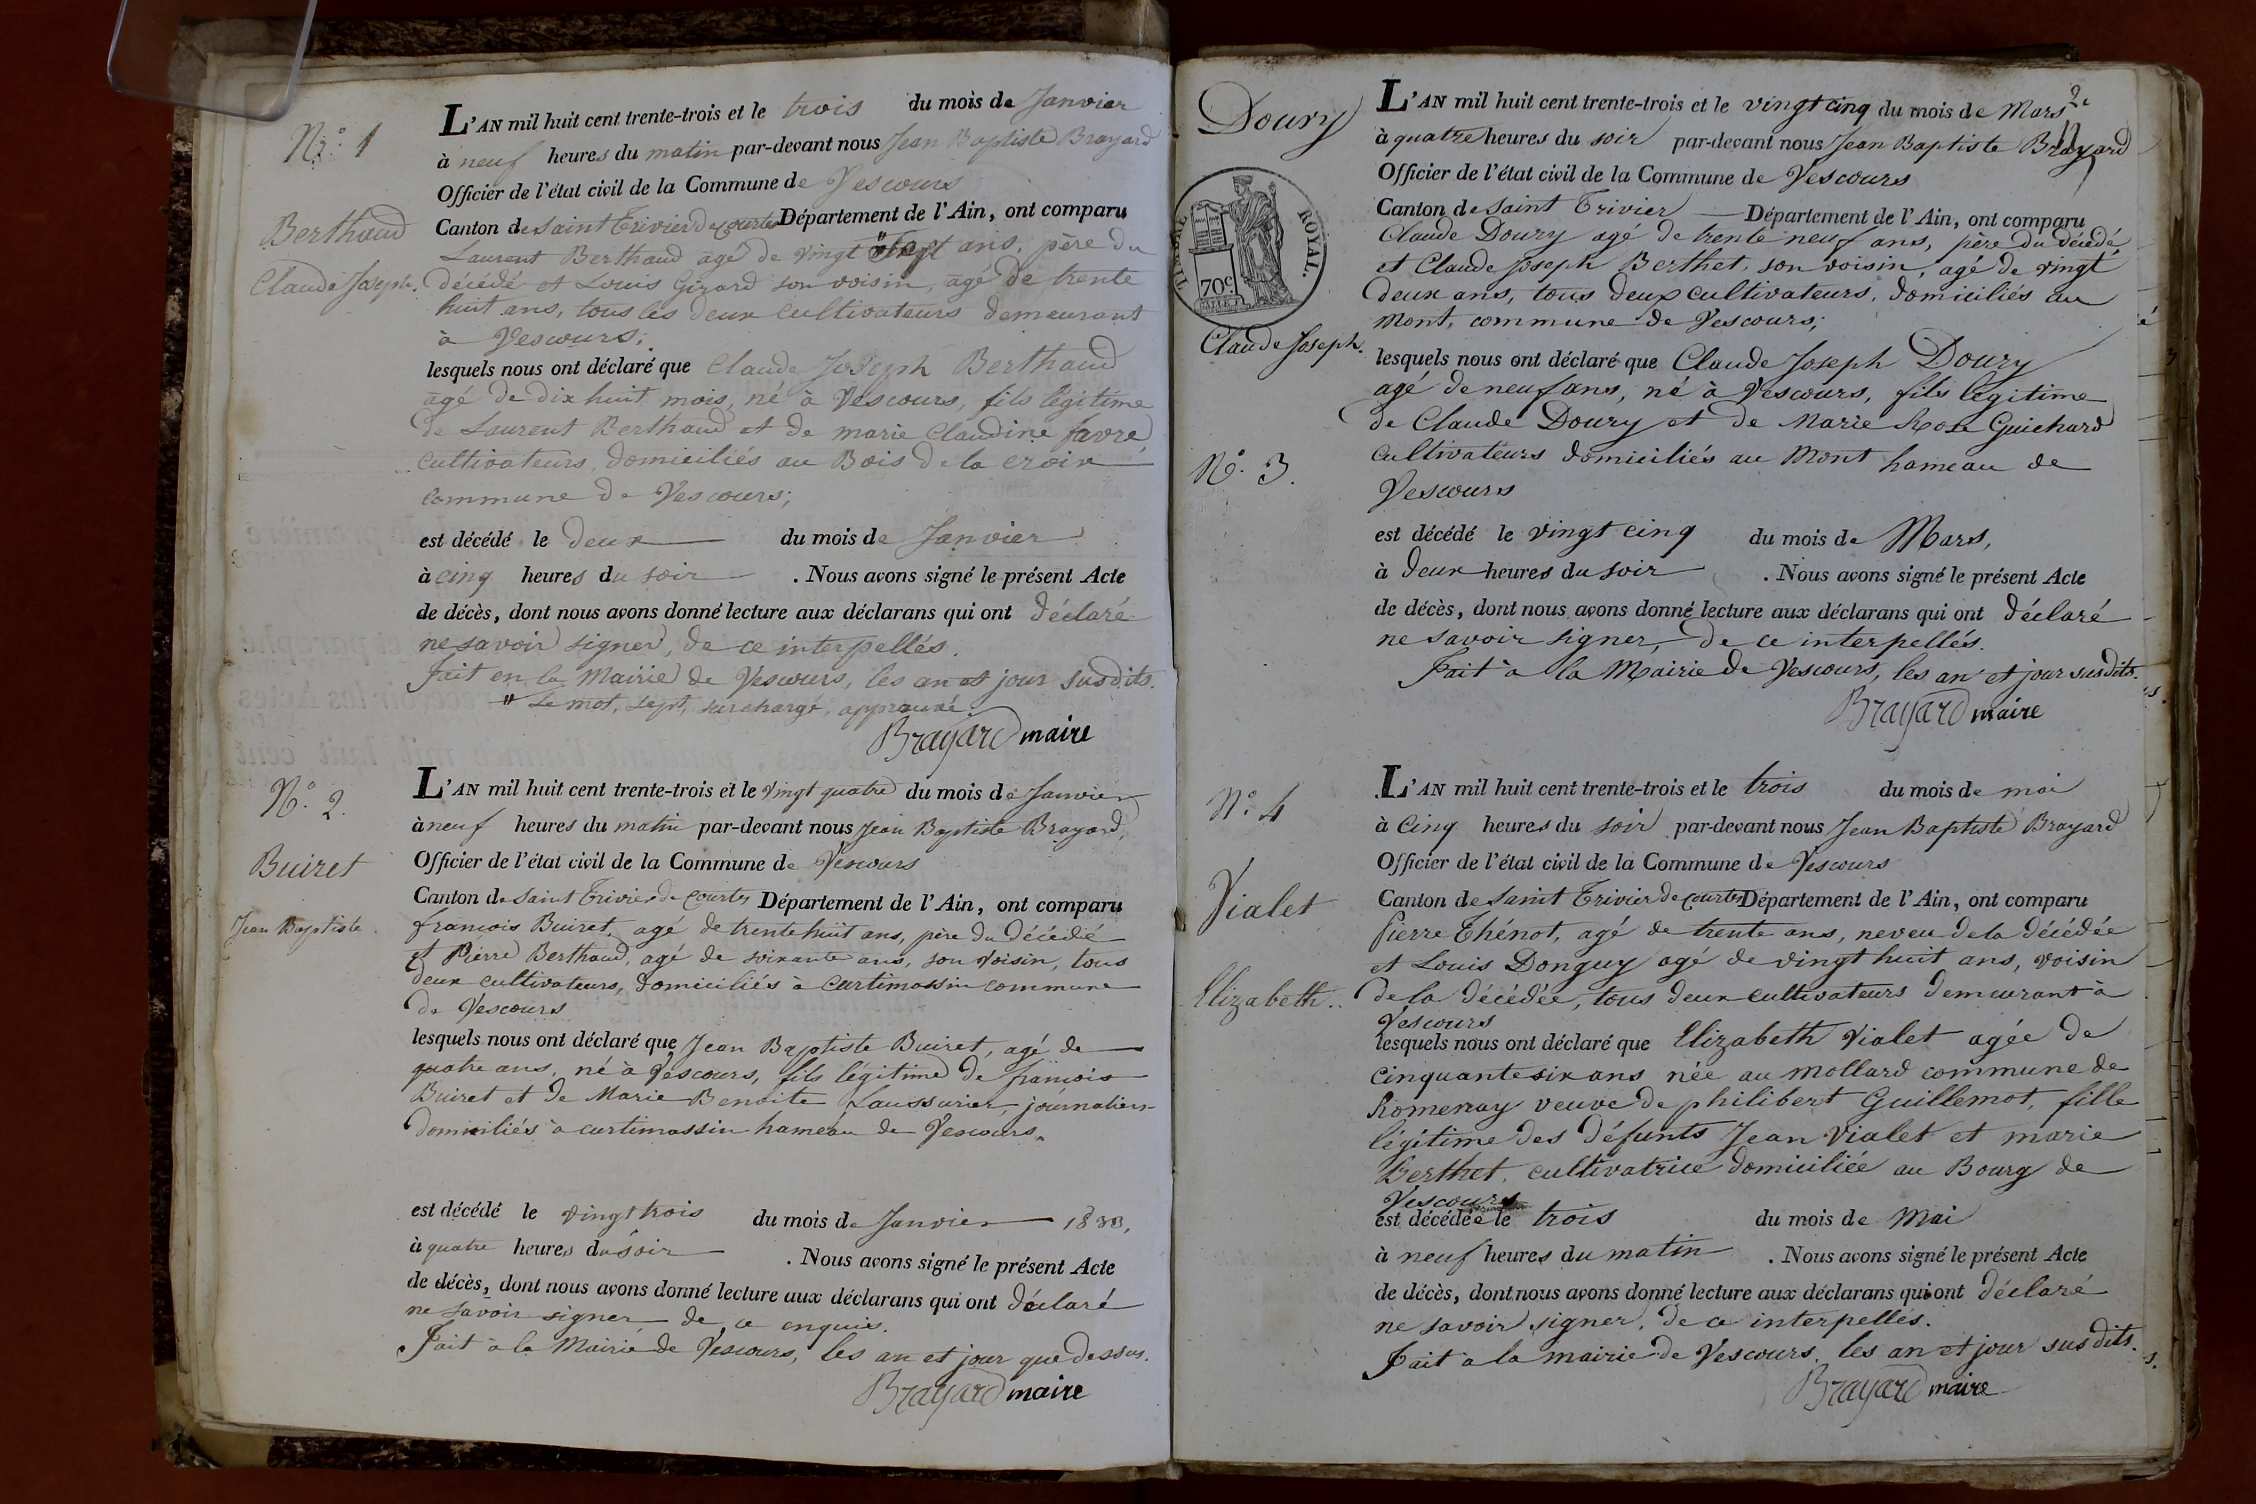 N.° 1
Berthaud
Claude Joseph.
L'AN mil huit cent trente-trois et le trois du mois de Janvier
à neuf heures du matin par-devant nous Jean Baptiste Brayard
Officier de l'état civil de la Commune de Vescours
Canton de Saint Trivier de Courtes Département de l'Ain, ont comparu
Laurent Berthaud agé de vingt "sept ans, père du
décédé et Louis Girard son voisin, agé de trente
huit ans, tous les deux cultivateurs demeurant
à Vescours;
lesquels nous ont déclaré que Claude Joseph Berthaud
agé de dix huit mois, né à Vescours, fils légitime
de Laurent Berthaud et de marie Claudine favre
cultivateurs, domiciliés au Bois de la croix
commune de Vescours;
est décédé le deux du mois de Janvier
à cinq heures du soir . Nous avons signé le présent Acte
de décès, dont nous avons donné lecture aux déclarans qui ont déclaré
ne savoir signer, de ce interpellés.
Fait en la Mairie de Vescours, les an et jour susdits.
" Le mot, sept, surchargé, approuvé.
Brayard maire
N.° 2.
Buiret
Jean Baptiste.
L'AN mil huit cent trente-trois et le vingt quatre du mois de Janvier
à neuf heures du matin par-devant nous Jean Baptiste Brayard,
Officier de l'état civil de la Commune de Vescours
Canton de Saint Trivier de Courtes Département de l'Ain, ont comparu
francois Buiret, agé de trente huit ans, père du décédé
et Pierre Berthaud, agé de soixante ans, son voisin, tous
deux cultivateurs, domiciliés à curtimassin commune
de Vescours
lesquels nous ont déclaré que Jean Baptiste Buiret, agé de
quatre ans, né à Vescours, fils légitime de francois
Buiret et de Marie Benoite Laussurier, journaliers
domiciliés à curtimassin hameau de Vescours.
est décédé le vingt trois du mois de Janvier 1833,
à quatre heures du soir . Nous avons signé le présent Acte
de décès, dont nous avons donné lecture aux déclarans qui ont déclaré
ne savoir signer de ce enquis.
Fait à la Mairie de Vescours, les an et jour que dessus.
Brayard maire
2e
Doury
TIMBRE ROYAL.
70c
Claude Joseph.
N°. 3.
L'AN mil huit cent trente-trois et le vingt cinq du mois de Mars
à quatre heures du soir par-devant nous Jean Baptiste Brayard
Officier de l'état civil de la Commune de Vescours
Canton de Saint Trivier Département de l'Ain, ont comparu
Claude Doury agé de trente neuf ans, père du décédé
et Claude Joseph Berthet, son voisin, agé de vingt
deux ans, tous deux cultivateurs, domiciliés au
Mont, commune de Vescours;
lesquels nous ont déclaré que Claude Joseph Doury
agé de neuf ans, né à Vescours, fils légitime
de Claude Doury et de Marie Rose Guichard
cultivateurs domiciliés au Mont hameau de
Vescours
est décédé le vingt cinq du mois de Mars,
à deux heures du soir . Nous avons signé le présent Acte
de décès, dont nous avons donné lecture aux déclarans qui ont déclaré
ne savoir signer, de ce interpellés.
Fait à la Mairie de Vescours, les an et jour susdits.
Brayard maire
N°. 4
Vialet
Elizabeth..
L'AN mil huit cent trente-trois et le trois du mois de mai
à cinq heures du soir par-devant nous Jean Baptiste Brayard
Officier de l'état civil de la Commune de Vescours
Canton de Saint Trivier de Courtes Département de l'Ain, ont comparu
Pierre Thénot, agé de trente ans, neveu de la décédée
et Louis Donguy agé de vingt huit ans, voisin
de la décédée, tous deux cultivateurs demeurant à
Vescours
lesquels nous ont déclaré que Elizabeth Vialet agée de
cinquante six ans née au mollard commune de
Romenay veuve de philibert Guillemot, fille
légitime des défunts Jean Vialet et marie
Berthet, cultivatrice domiciliée au Bourg de
Vescours
est décédée le trois du mois de Mai
à neuf heures du matin . Nous avons signé le présent Acte
de décès, dont nous avons donné lecture aux déclarans qui ont déclaré
ne savoir signer, de ce interpellés.
Fait à la mairie de Vescours, les an et jour susdits.
Brayard maire